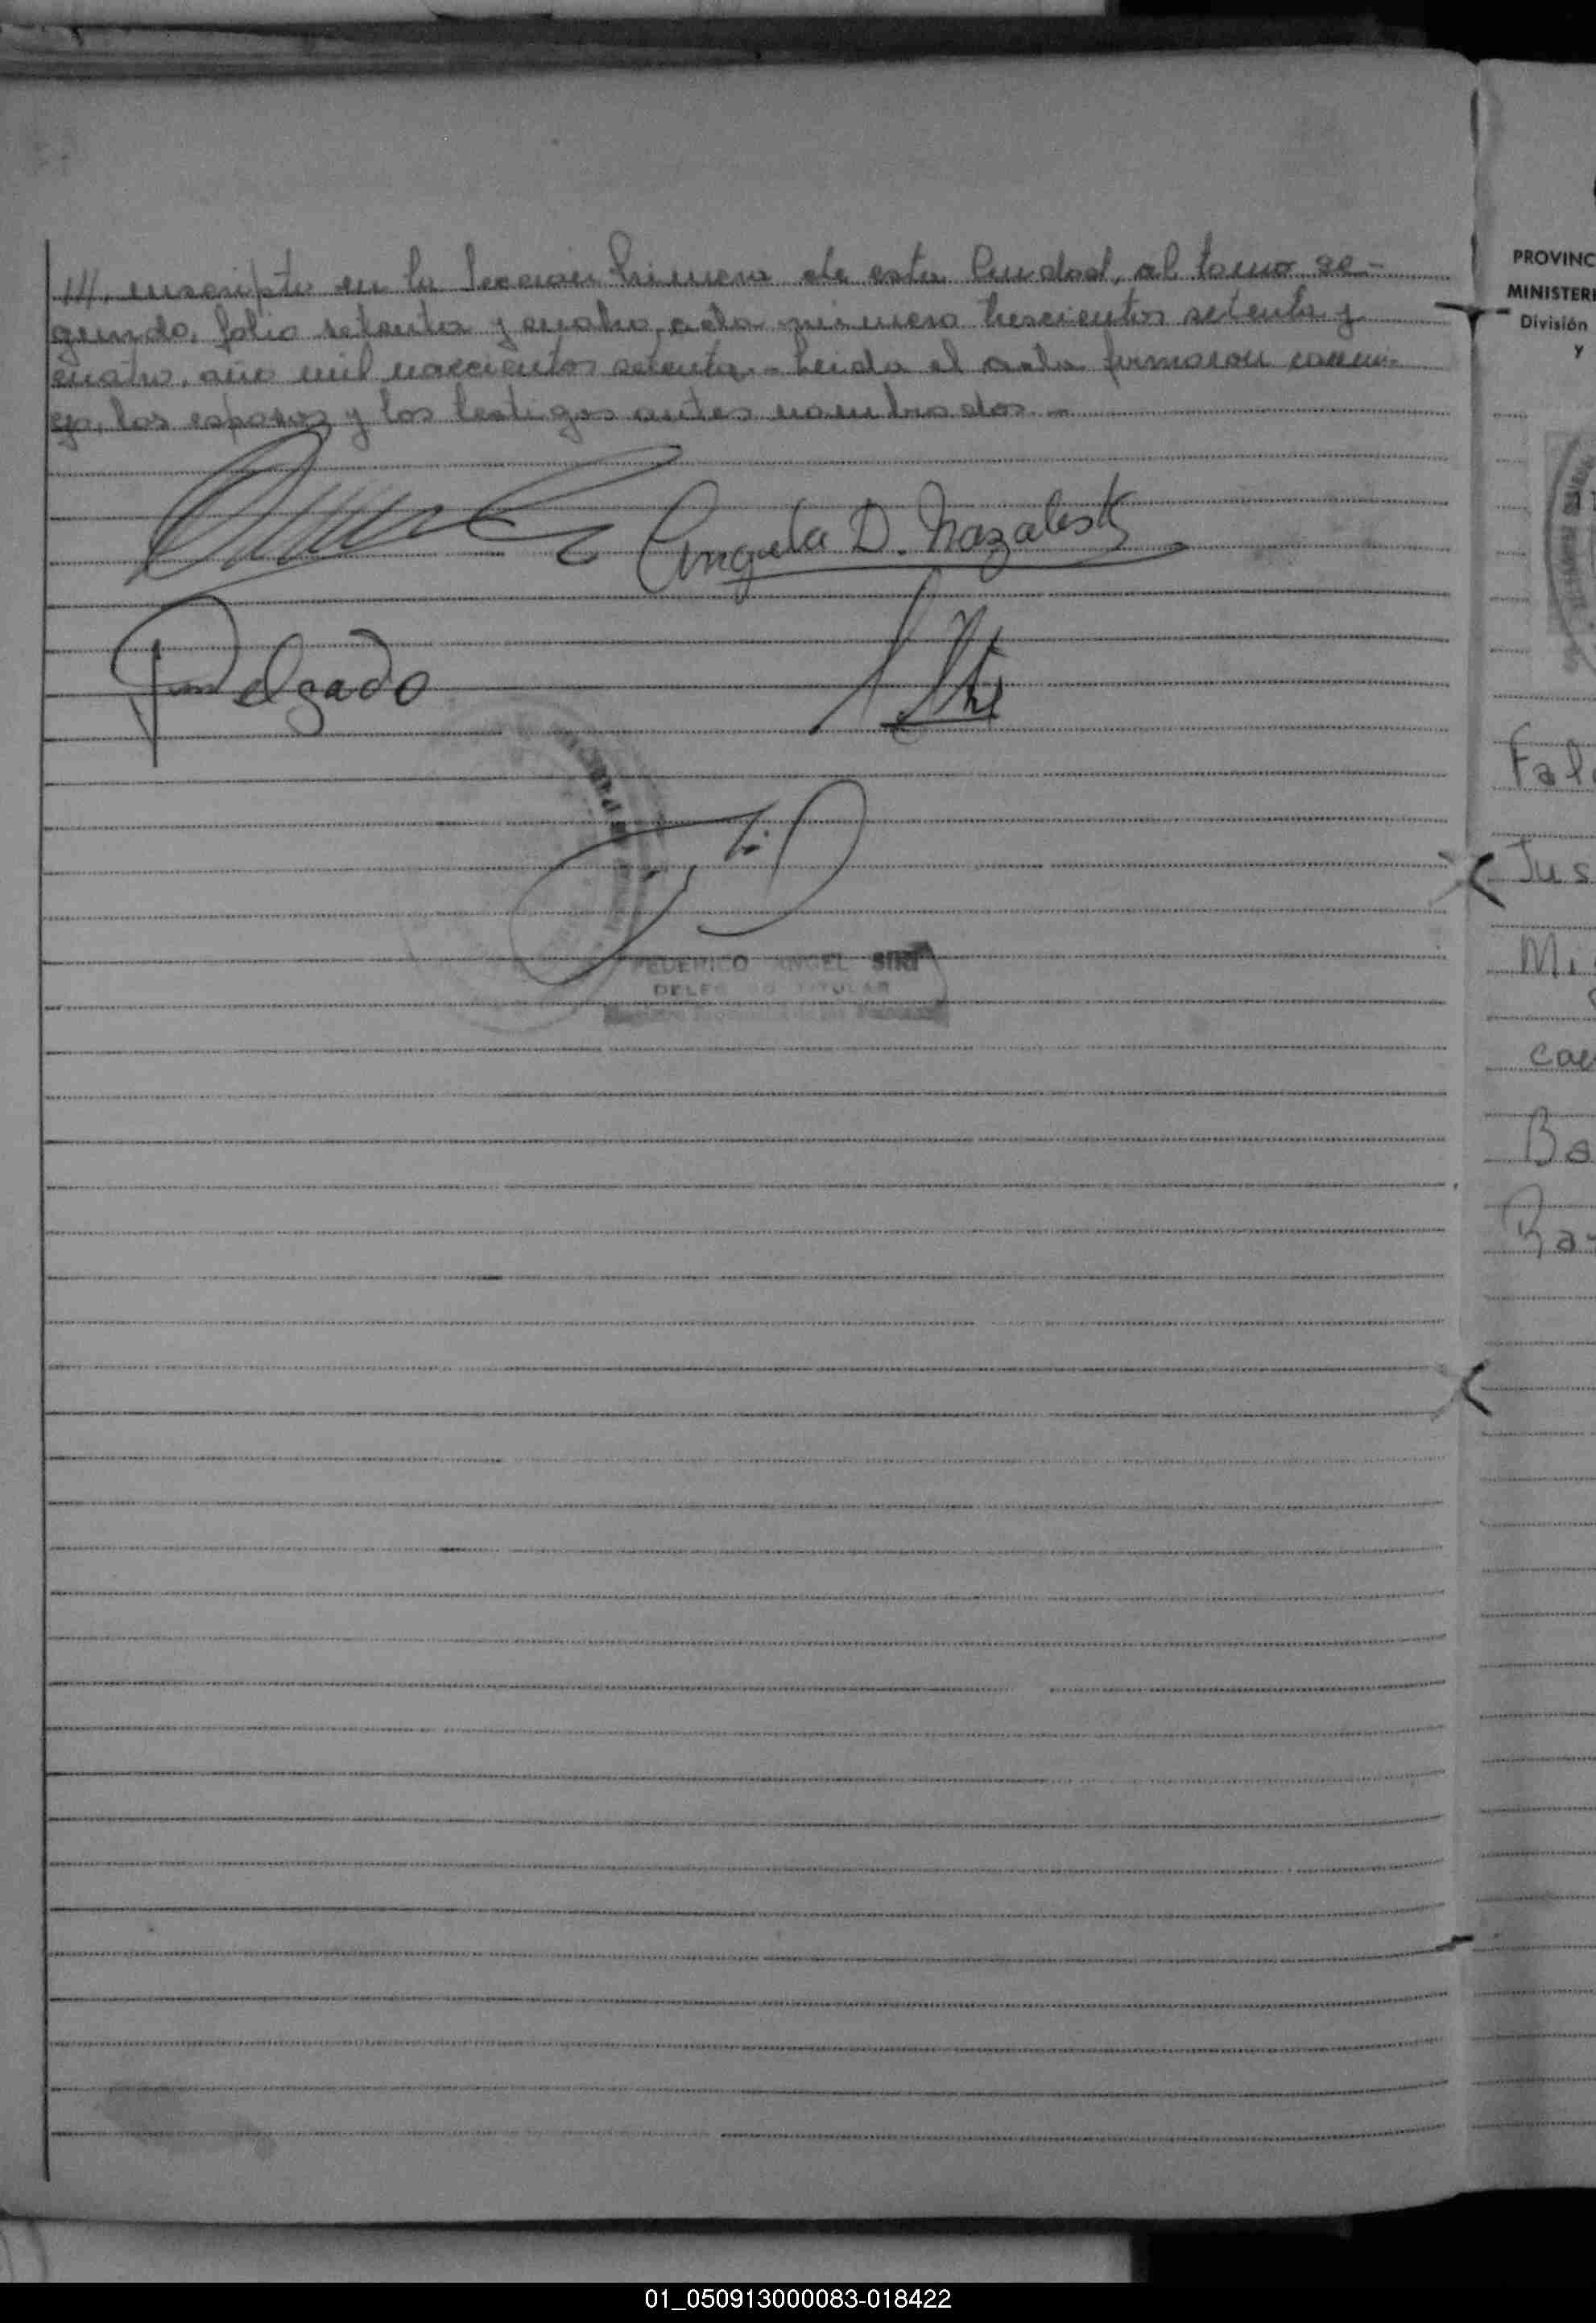 ///. inscripto en la Sección Primera de esta Ciudad, al tomo se-
gundo, folio setenta y cuatro, acta número trescientos setenta y
cuatro, año mil novecientos setenta.- Leida el acta firmaron conmi-
go, los esposos y los testigos antes nombrados.-
Angela D.
Delgado
FEDERICO ANGEL SIRI
DELEGADO TITULAR
PROVINC
MINISTERI
División
y
Fal
Jus
Mi
Ba
Ra
01_050913000083-018422